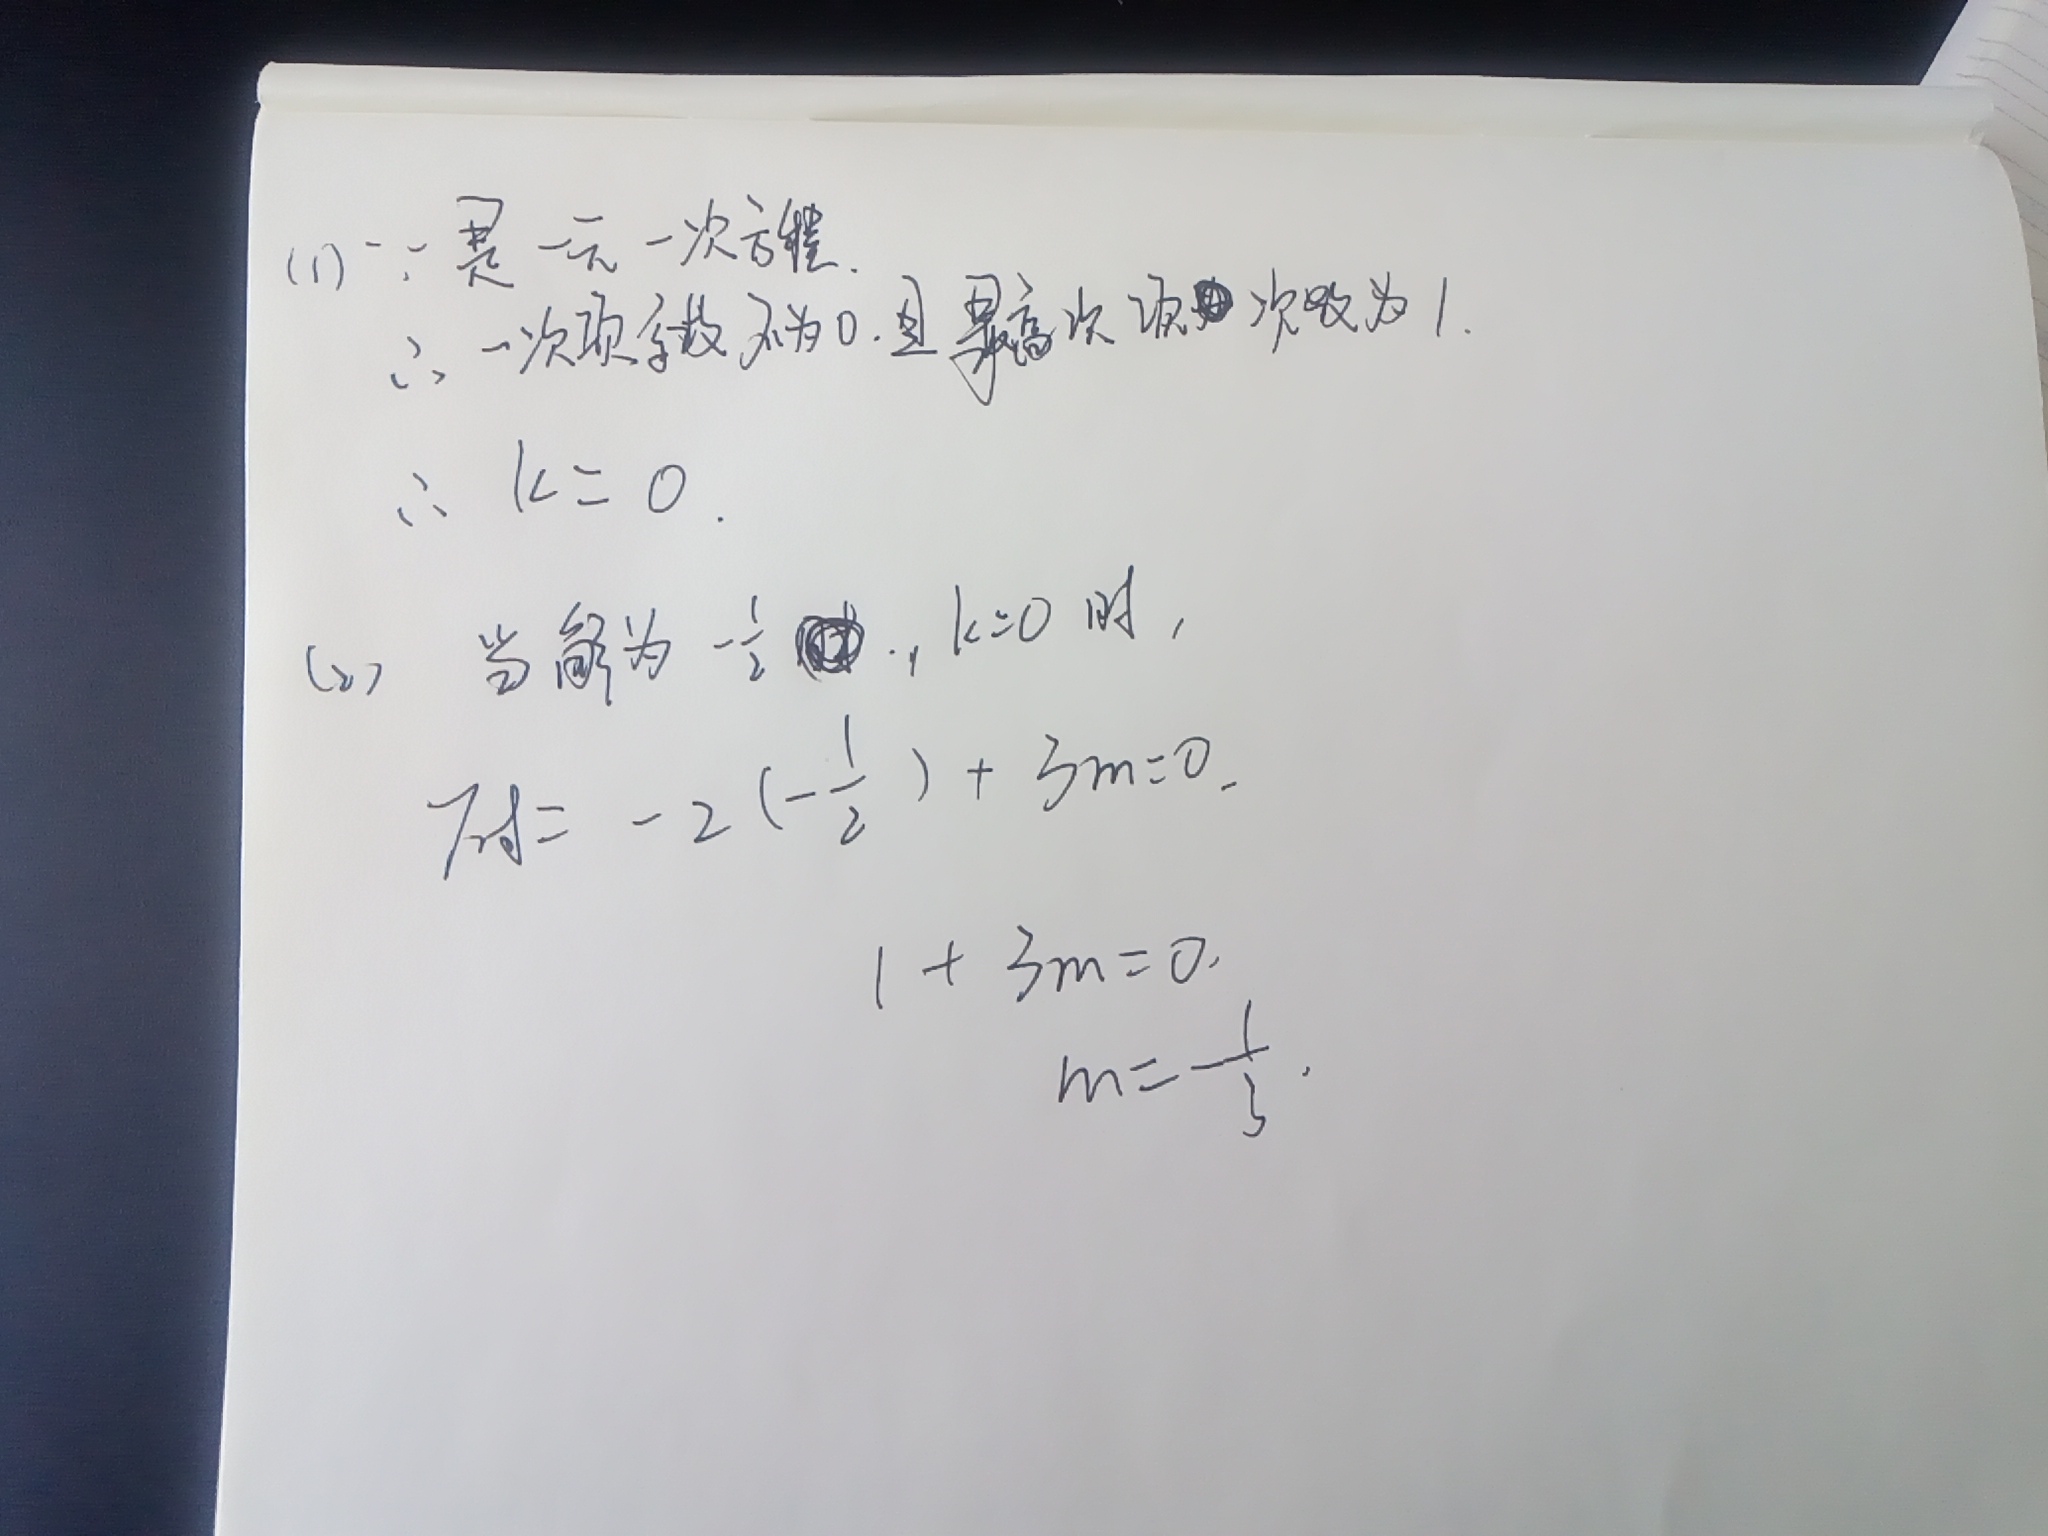 (1) ∵ 是一元一次方程.
∴ 一次项系数不为0.且最高次项次数为1.
∴ k=0.
(2) 当解为-1/2., k=0时,
原式= -2(-1/2)+3m=0.
1+3m=0.
m=-1/3.